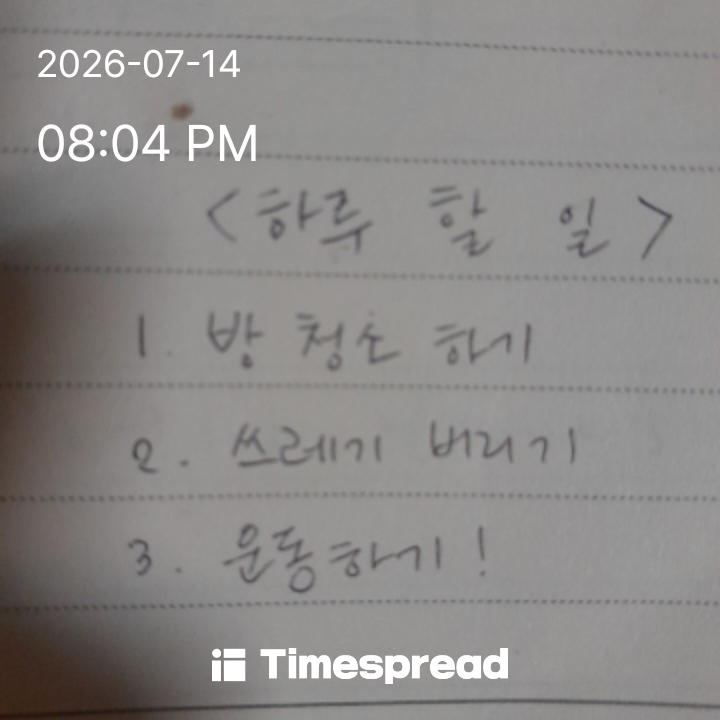 2026-07-14
08:04 PM
<하루 할 일>
1. 방 청소 하기
2. 쓰레기 버리기
3. 운동하기!
Timespread